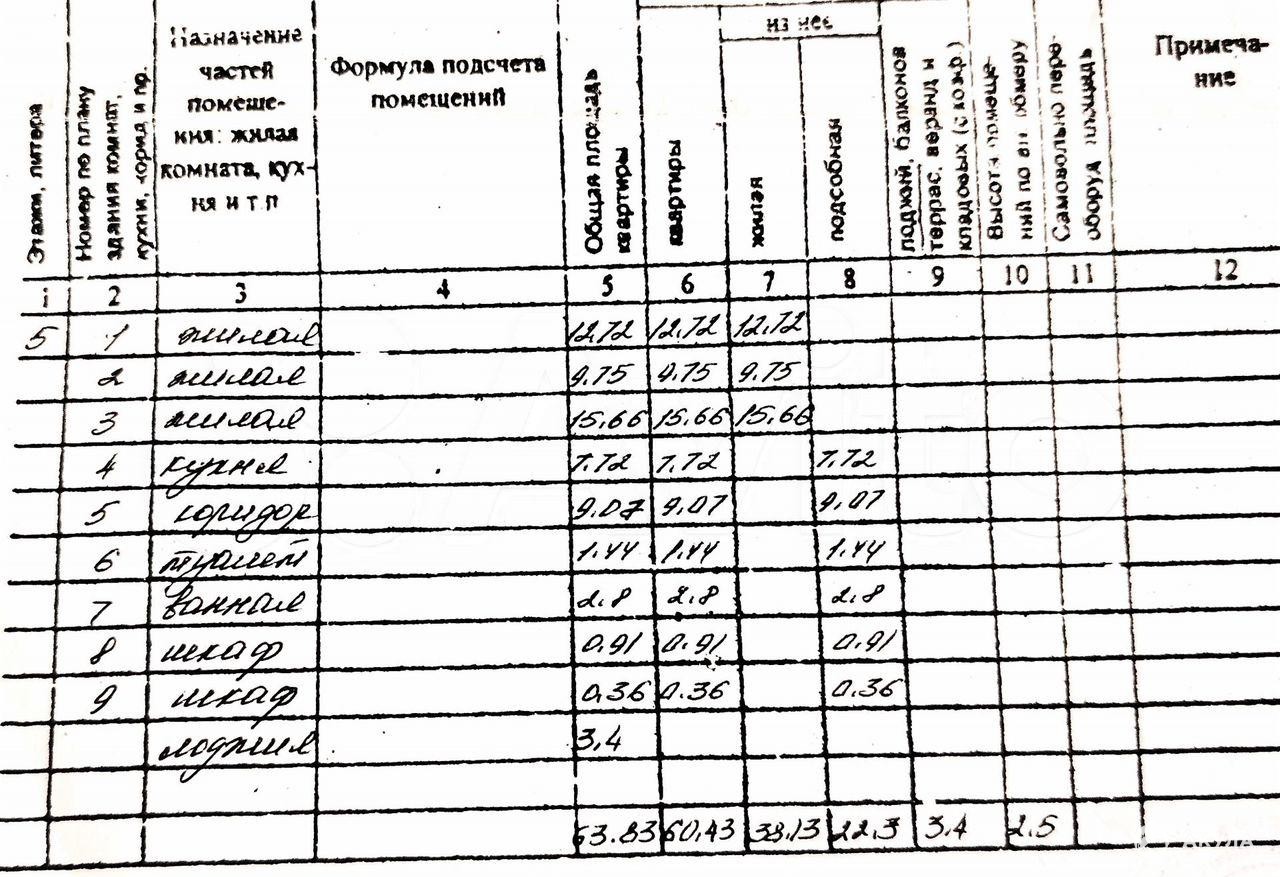 из нее
Этажи, литера
Номер по плану
здания комнат,
кухни, корид и пр.
Назначение
частей
помеще-
ния: жилая
комната, кух-
ня и т.п
Формула подсчета
помещений
Общая площадь
квартиры
квартиры
жилая
подсобная
лоджий, балконов
террас, веранд и
кладовых (с коэф.)
Высота помеще-
ний по вн обмеру
Самовольно пере-
оборуд площадь
Примеча-
ние
1 2 3 4 5 6 7 8 9 10 11 12
5 1 жилая 12,72 12,72 12,72
2 жилая 9.75 9.75 9.75
3 жилая 15.66 15.66 15.66
4 кухня 7.72 7.72 7.72
5 коридор 9.07 9.07 9.07
6 туалет 1.44 1.44 1.44
7 ванная 2.8 2.8 2.8
8 шкаф 0.91 0.91 0.91
9 шкаф 0.36 0.36 0.36
лоджия 3,4
63.83 60,43 38.13 22.3 3.4 2.5